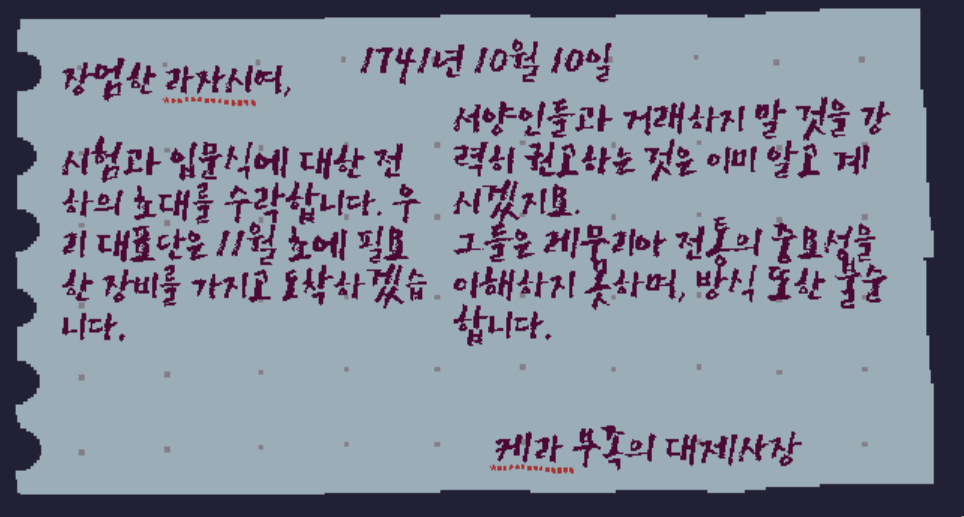 1741년 10월 10일
장엄한 라자시여,
시험과 입문식에 대한 전
하의 초대를 수락합니다. 우
리 대표단은 11월 초에 필요
한 장비를 가지고 도착하겠습
니다.
서양인들과 거래하지 말 것을 강
력히 권고하는 것은 이미 알고 계
시겠지요.
그들은 레무리아 전통의 중요성을
이해하지 못하며, 방식 또한 불순
합니다.
케라 부족의 대제사장